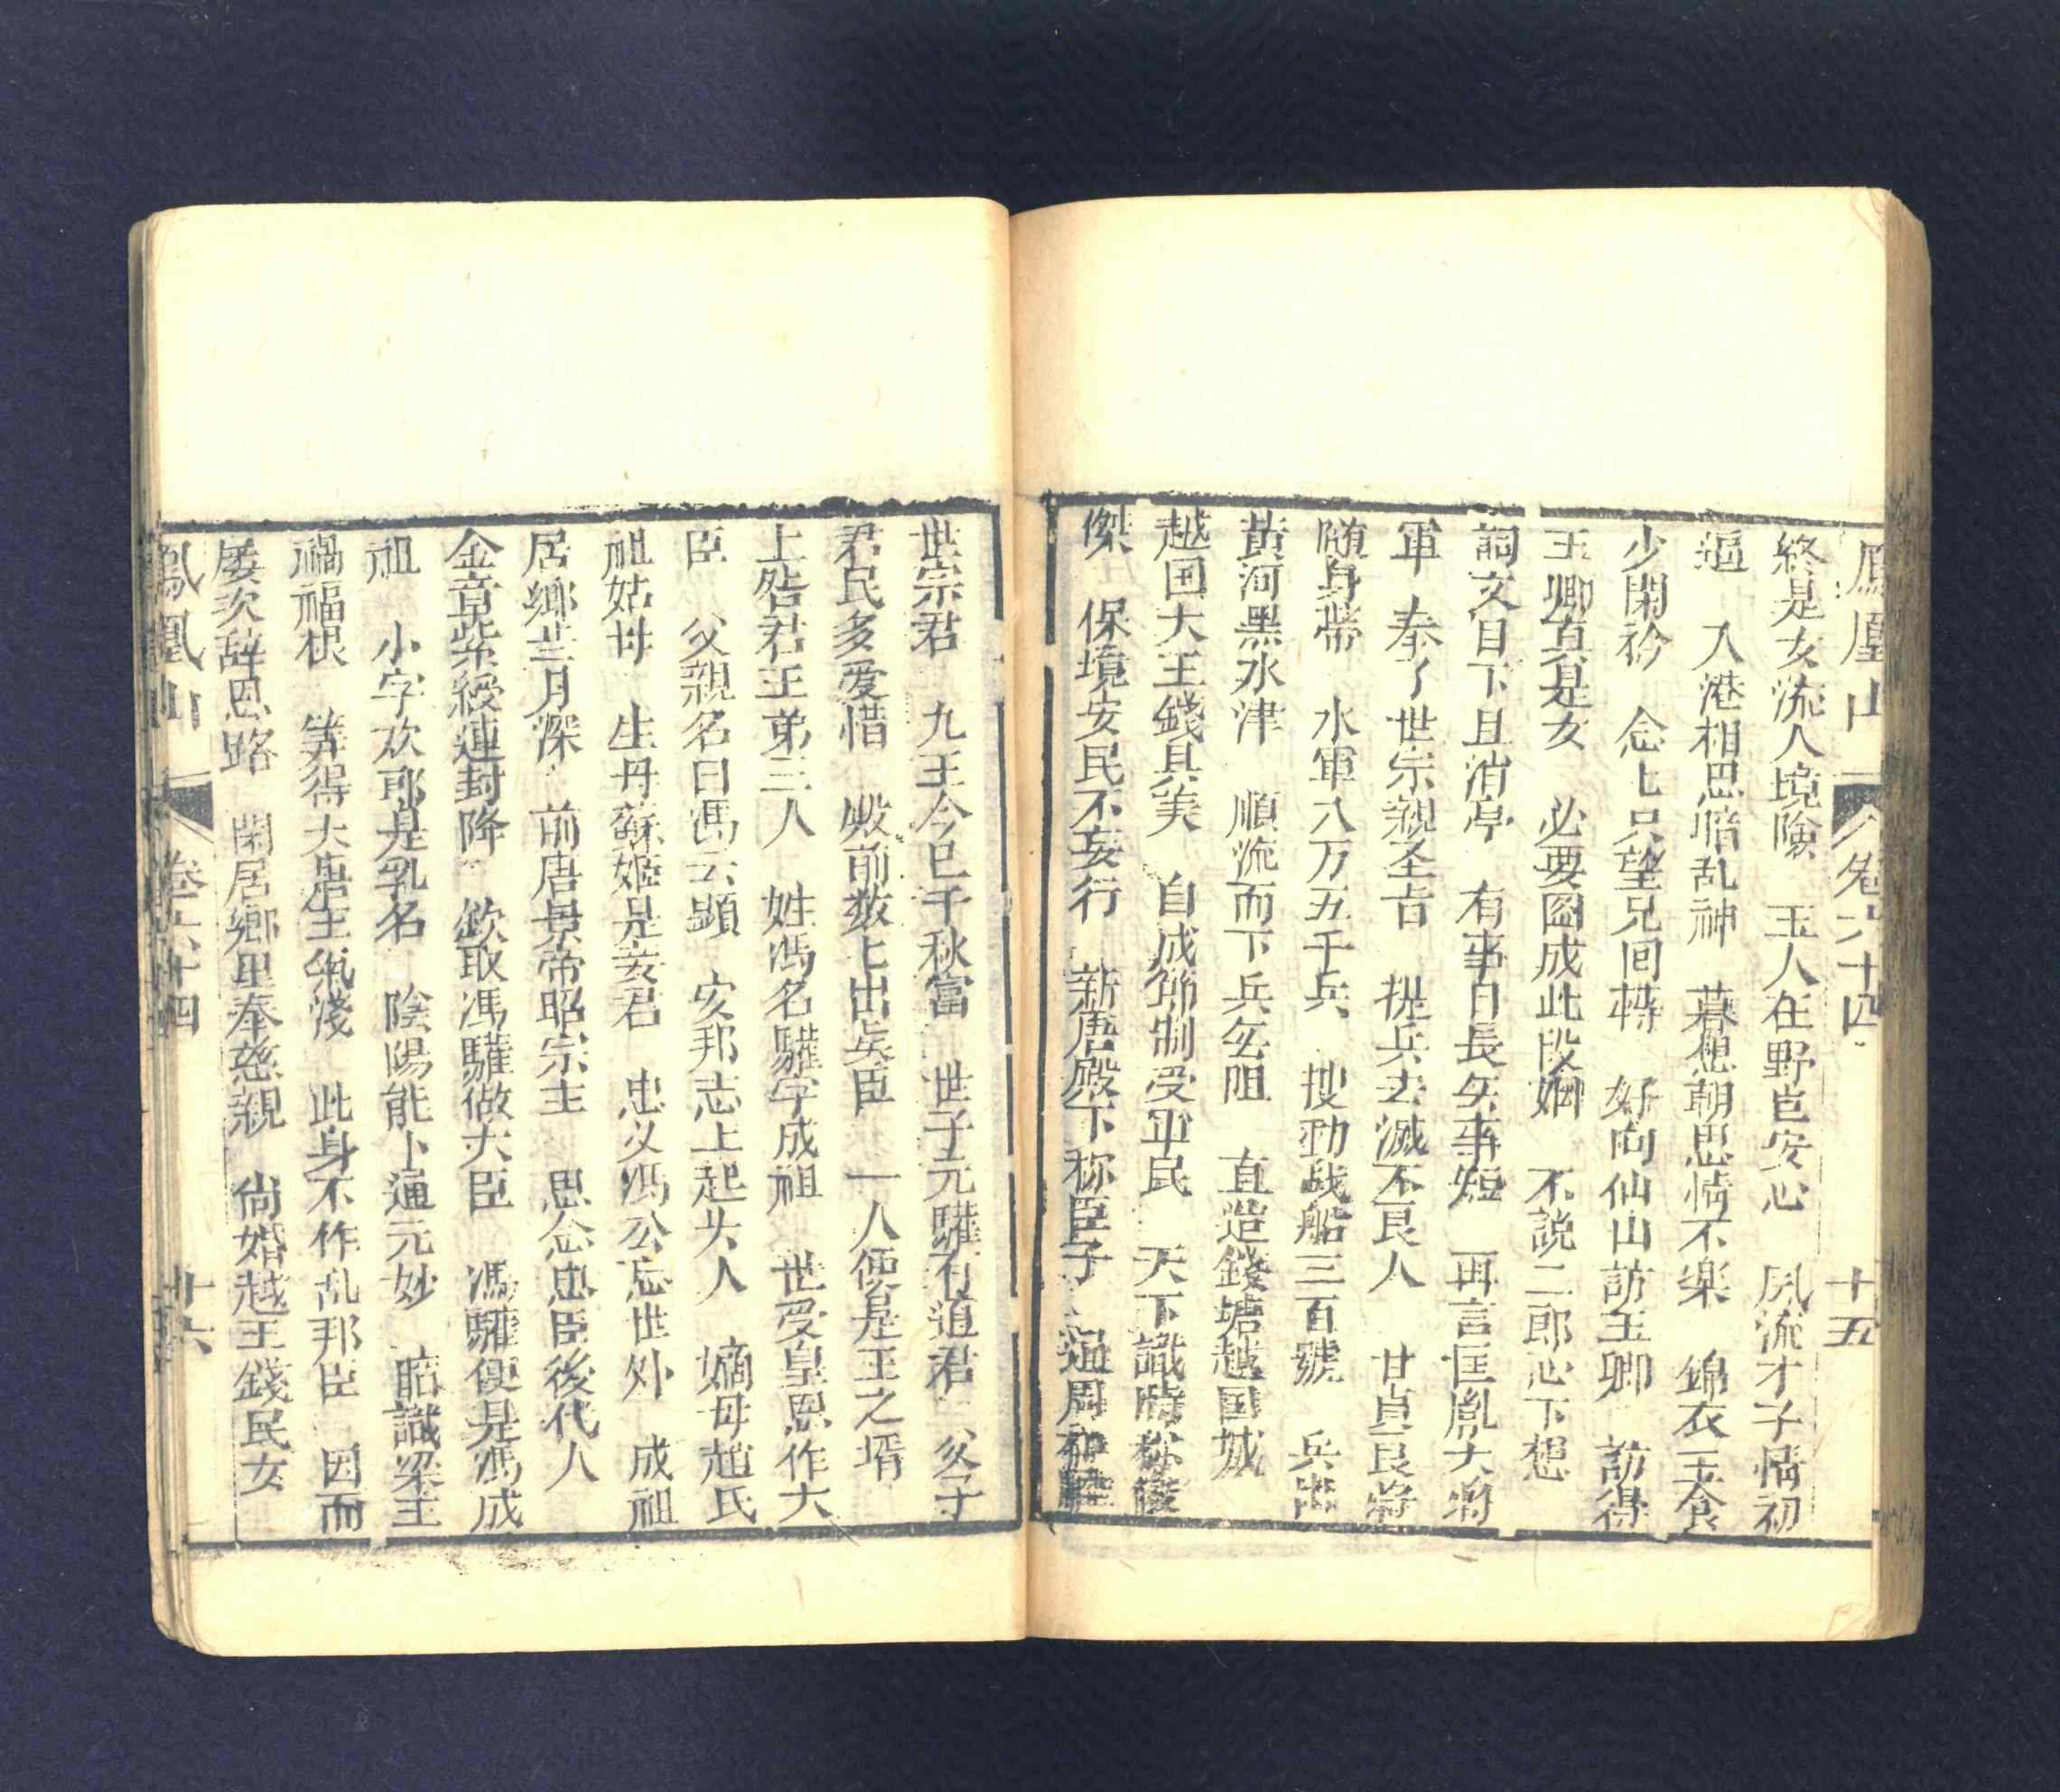 鳳凰山 卷六十四 十五
終是女流人境險 玉人在野豈安心 風流才子情初
逼 入港相思暗乱神 暮想朝思情不楽 錦衣玉食
少開衿 念匕只望兄回轉 好向仙山訪玉卿 訪得
玉卿真是女 必要圖成此段姻 不説二郎心下想
詞文目下且消停 有事日長矣事短 再言匡胤大將
軍 奉了世宗親圣旨 提兵去滅不良人 甘貞良將
随身帶 水軍八万五千兵 搜動战船三百號 兵出
黃河黑水津 順流而下兵矣阻 直造錢塘越国城
越国大王錢具美 自成節制受軍民 天下識時称俊
傑 保境安民不妄行 新唐殿下称臣子 通周和
世宗君 九王今已千秋富 世子元驩有道君 父子
君民多爱惜 殿前数匕出矣臣 一人便是王之壻
上咎君王弟三人 姓馮名驩字成祖 世受皇恩作大
臣 父親名曰馮云顕 安邦志上起头人 嫡母趙氏
祖姑母 生母蘇姬是妾君 忠义馮公忘世外 成祖
居鄉芸月深 前唐景帝昭宗主 思念忠臣後代人
金章紫綬連封降 欽取馮驩做大臣 馮驩便是馮成
祖 小字欢郎是乳名 陰陽能卜通元妙 暗識梁主
禍福根 算得大唐王氣淺 此身不作乱邦臣 因而
屡次辞恩路 閑居鄉里奉慈親 尚婚越王錢民女
鳳凰山 卷六十四 十六